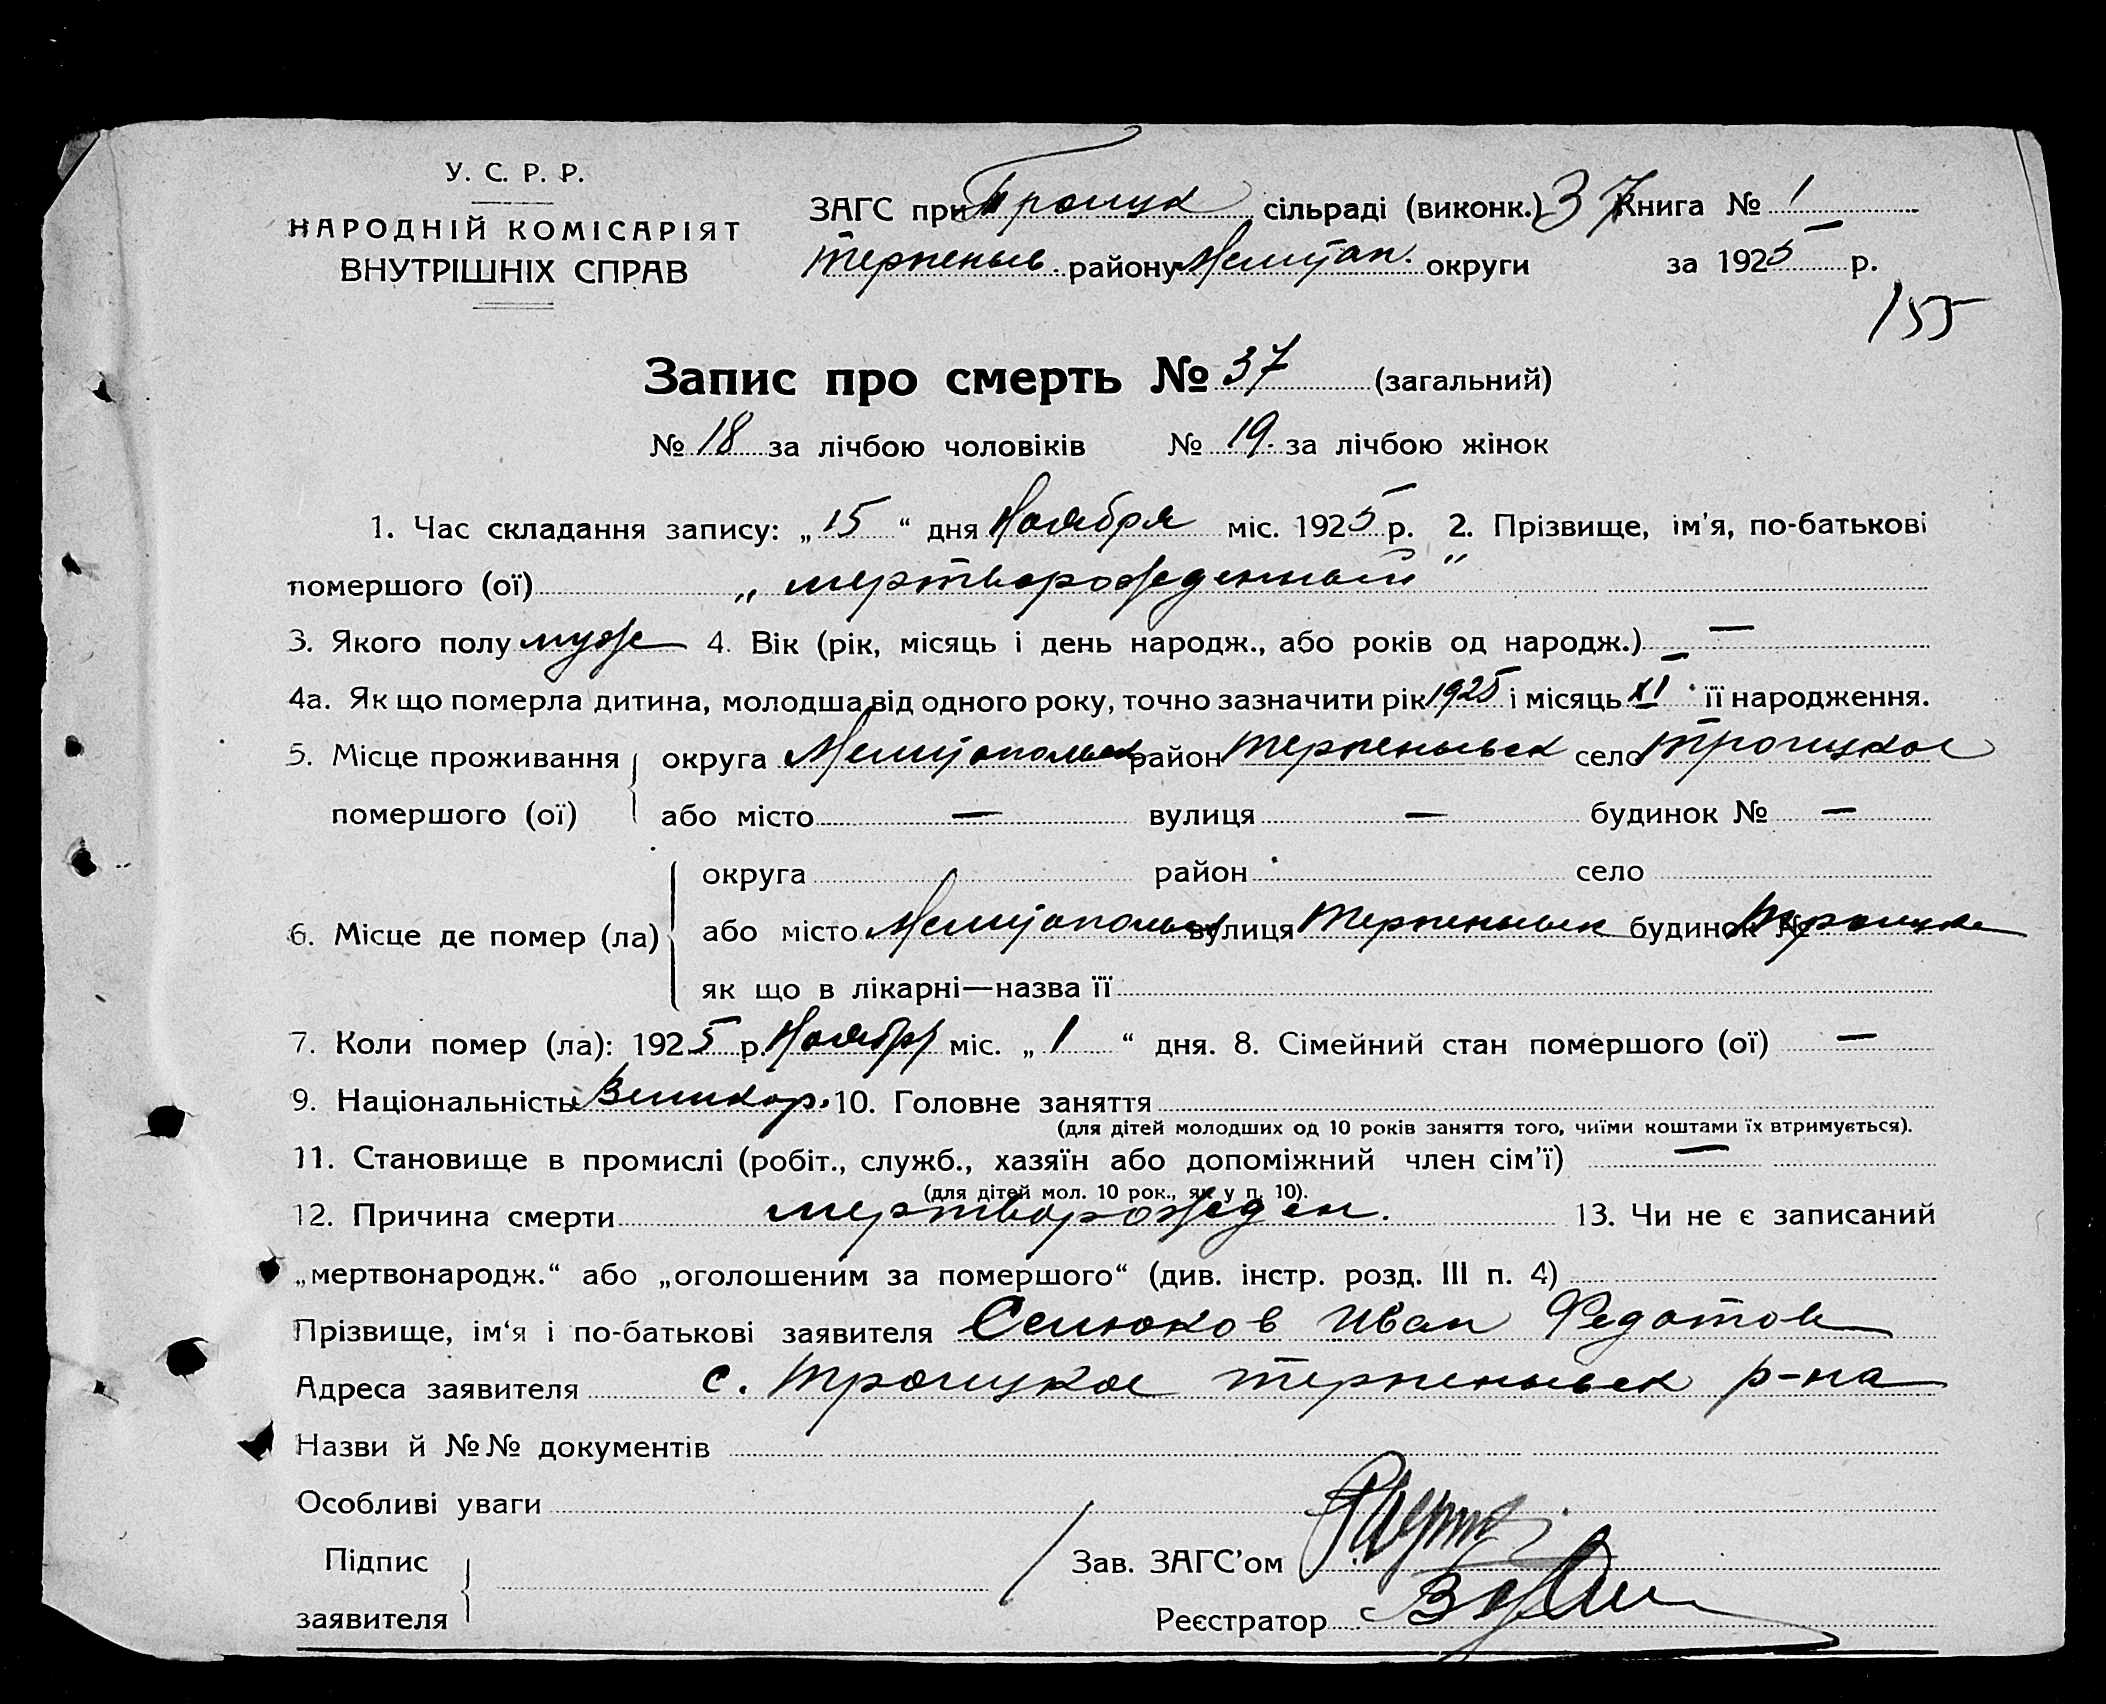 У. С. Р. Р.
НАРОДНІЙ КОМІСАРІЯТ
ВНУТРІШНІХ СПРАВ
ЗАГС при Троицк сільраді (виконк.) 37 Книга № 1
Терпеньев. району Мелитоп. округи за 1925 р.
155
Запис про смерть № 37 (загальний)
№ 18 за лічбою чоловіків № 19. за лічбою жінок
1. Час складання запису: „15“ дня Ноября міс. 1925 р. 2. Прізвище, ім'я, по-батькові
помершого (ої) „мертворожденный“
3. Якого полу муж 4. Вік (рік, місяць і день народж., або років од народж.) —
4а. Як що померла дитина, молодша від одного року, точно зазначити рік 1925 і місяць XI її народження.
5. Місце проживання округа Мелитопольск район Терпеньевск село Троицкое
помершого (ої) або місто — вулиця — будинок № —
округа район село
6. Місце де помер (ла) або місто Мелитопольск вулиця Терпеньевск будинок № Троицкое
як що в лікарні—назва її
7. Коли помер (ла): 1925 р. Ноября міс. „1“ дня. 8. Сімейний стан помершого (ої) —
9. Національність Великор. 10. Головне заняття
(для дітей молодших од 10 років заняття того, чиїми коштами їх втримується).
11. Становище в промислі (робіт., служб., хазяїн або допоміжний член сім'ї) —
(для дітей мол. 10 рок., як у п. 10).
12. Причина смерти мертворожден. 13. Чи не є записаний
„мертвонародж.“ або „оголошеним за помершого“ (див. інстр. розд. III п. 4)
Прізвище, ім'я і по-батькові заявителя Селюков Иван Федотов
Адреса заявителя с. Троицкое Терпеньевск р-на
Назви й №№ документів
Особливі уваги
Підпис
заявителя
Зав. ЗАГС'ом
Реєстратор